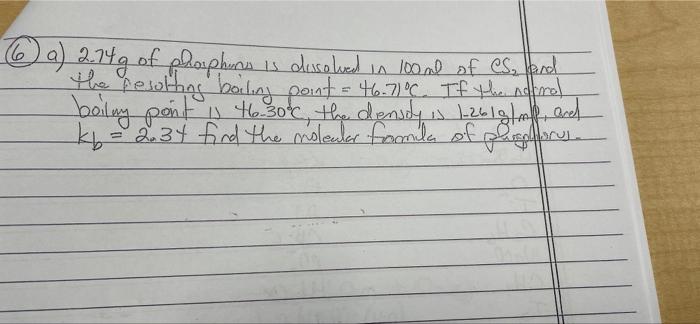 ⑥ a) 2.74g of phosphorus is dissolved in 100ml of CS₂ and
the resulting boiling point = 46.71°C. If the normal
boiling point is 46.30°C, the density is 1.261g/ml, and
Kb = 2.34 find the molecular formula of phosphorus.